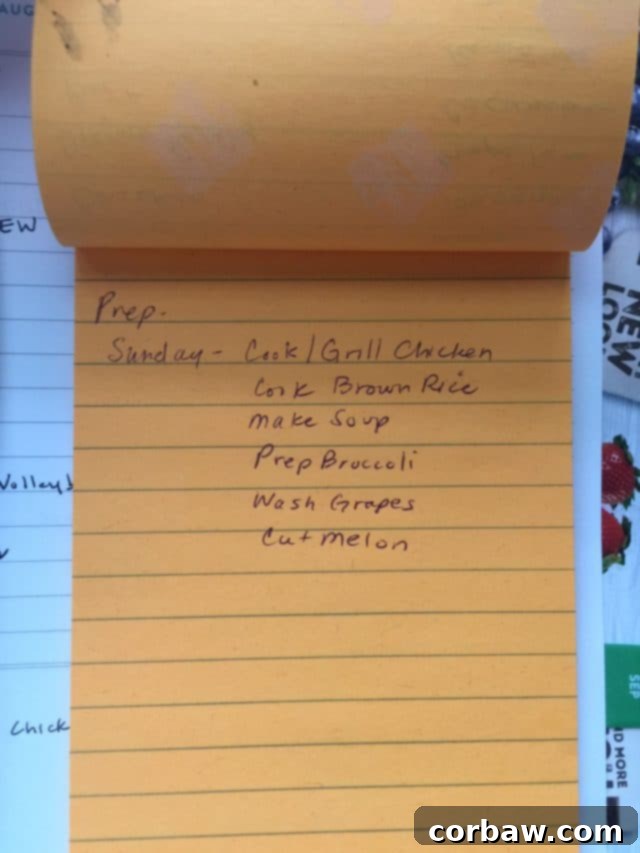 AUG
EW
Prep.
Sunday - Cook/Grill Chicken
Cook Brown Rice
Make Soup
Prep Broccoli
Wash Grapes
Cut Melon
Volleyb
Chick
NEW
LOO
SEP
ND MORE
corbaw.com